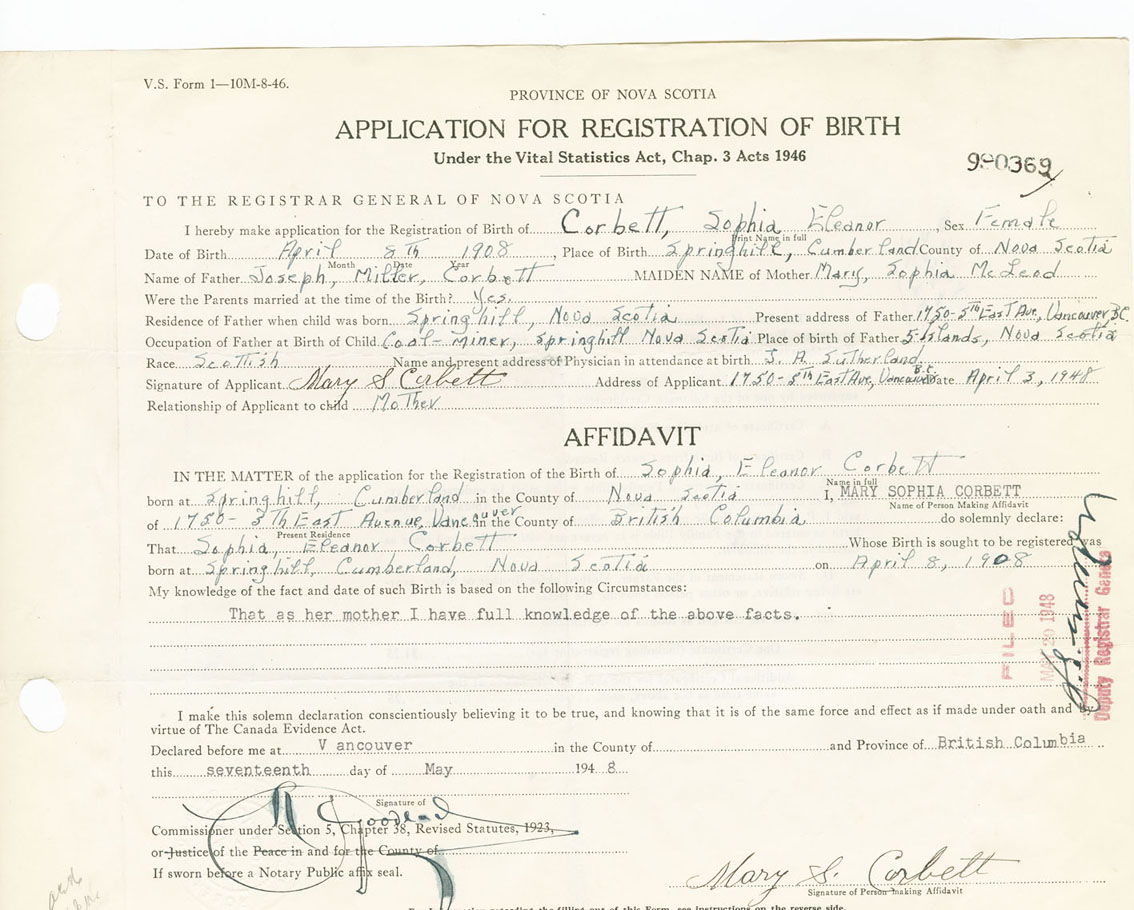 V.S. Form 1—10M-8-46.
PROVINCE OF NOVA SCOTIA
APPLICATION FOR REGISTRATION OF BIRTH
Under the Vital Statistics Act, Chap. 3 Acts 1946
990369
TO THE REGISTRAR GENERAL OF NOVA SCOTIA
I hereby make application for the Registration of Birth of Corbett, Sophia Eleanor, Sex Female
Print Name in full
Date of Birth April 8th 1908, Place of Birth Springhill, Cumberland County of Nova Scotia
Month Date Year
Name of Father Joseph, Miller, Corbett MAIDEN NAME of Mother Mary, Sophia McLeod
Were the Parents married at the time of the Birth? Yes.
Residence of Father when child was born Springhill, Nova Scotia Present address of Father 1750-5th East Ave, Vancouver B.C.
Occupation of Father at Birth of Child Coal-miner, Springhill Nova Scotia Place of birth of Father 5-Islands, Nova Scotia
Race Scottish Name and present address of Physician in attendance at birth J. A Sutherland
Signature of Applicant Mary S Corbett Address of Applicant 1750-5th East Ave, Vancouver B.C. Date April 3, 1948
Relationship of Applicant to child Mother
AFFIDAVIT
IN THE MATTER of the application for the Registration of the Birth of Sophia, Eleanor Corbett
Name in full
born at Springhill, Cumberland in the County of Nova Scotia I, MARY SOPHIA CORBETT
Name of Person Making Affidavit
of 1750-5th East Avenue, Vancouver in the County of British Columbia do solemnly declare:
Present Residence
That Sophia, Eleanor Corbett Whose Birth is sought to be registered was
born at Springhill, Cumberland, Nova Scotia on April 8, 1908
My knowledge of the fact and date of such Birth is based on the following Circumstances:
That as her mother I have full knowledge of the above facts.
FILED
1948
Deputy Registrar General
I make this solemn declaration conscientiously believing it to be true, and knowing that it is of the same force and effect as if made under oath and by
virtue of The Canada Evidence Act.
Declared before me at Vancouver in the County of and Province of British Columbia
this seventeenth day of May 1948
Signature of
Commissioner under Section 5, Chapter 38, Revised Statutes, 1923,
or Justice of the Peace in and for the County of
If sworn before a Notary Public affix seal.
Mary S. Corbett
Signature of Person making Affidavit
see instructions on the reverse side.